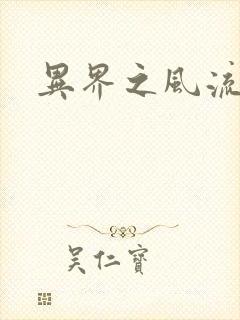 異界之風流
吳仁寶